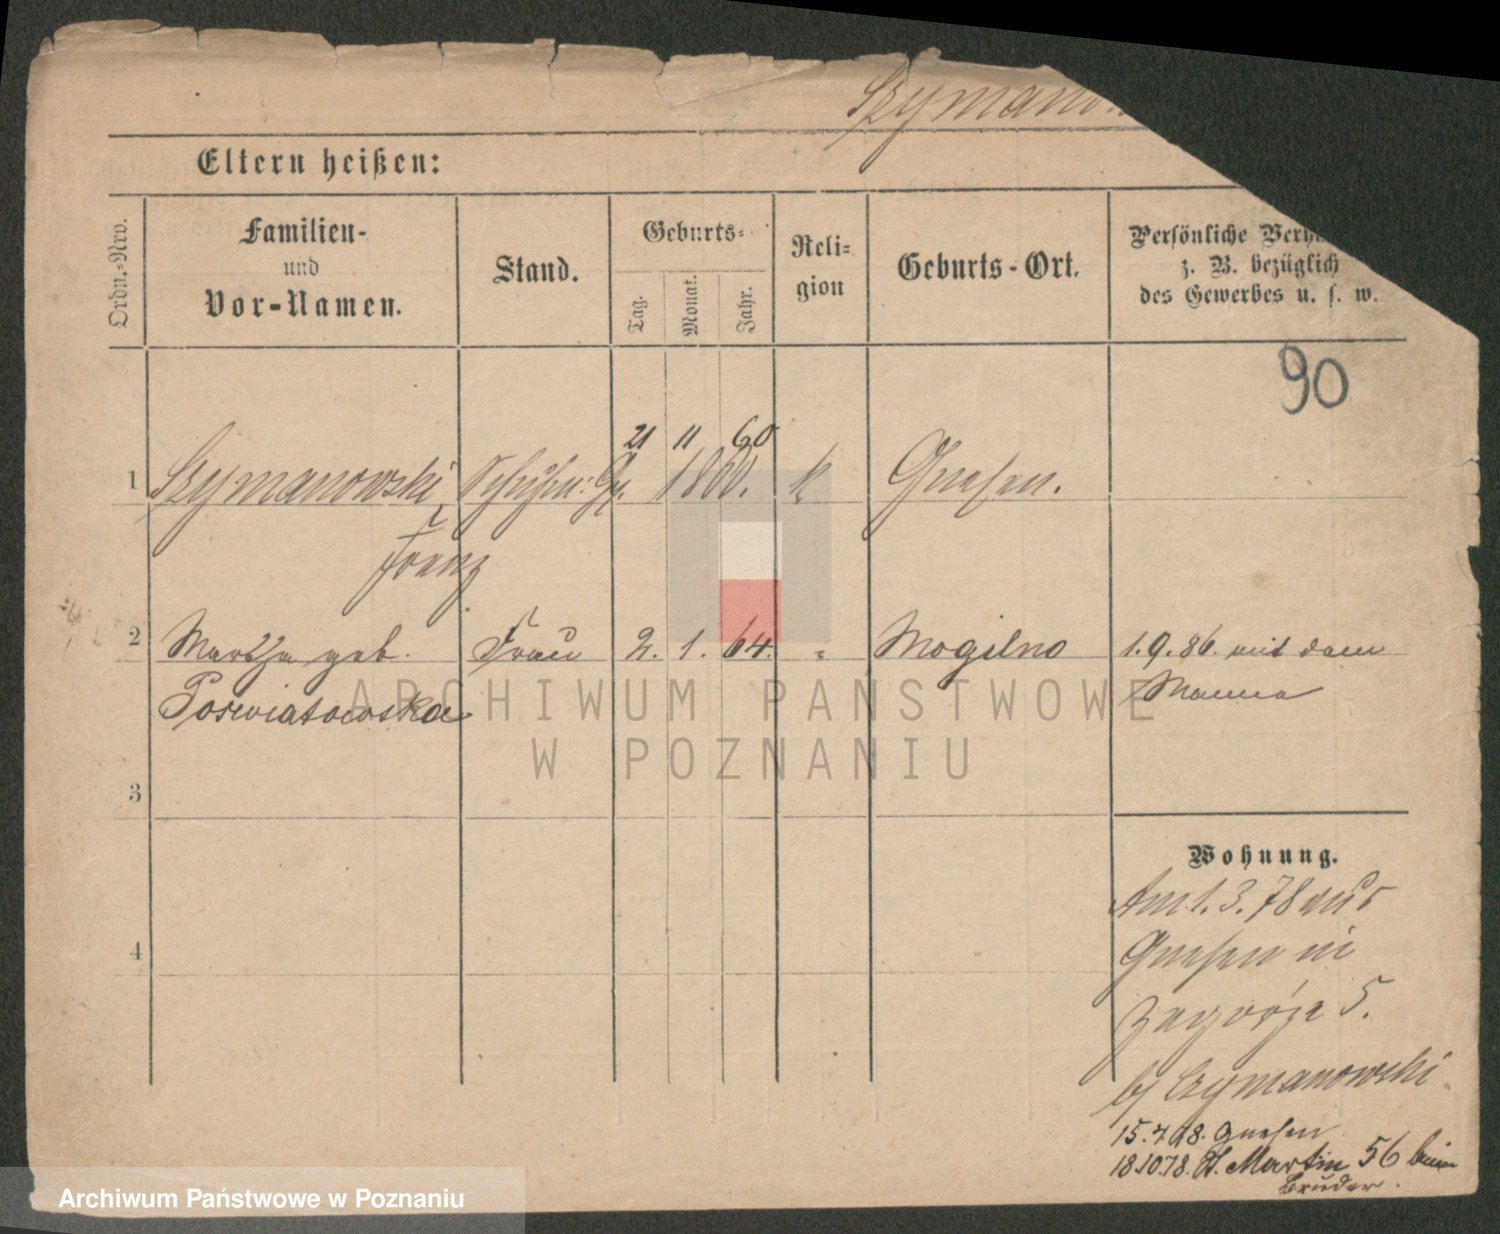 Szymano
Eltern heißen:
Ordn.-Nro.
Familien-
und
Vor-Namen.
Stand.
Geburts-
Tag.
Monat.
Jahr.
Reli-
gion
Geburts-Ort.
Persönliche Verh
z. B. bezüglich
des Gewerbes u. s. w.
90
21 11 60
1 Szymanowski Schuhm: Gs. 1860. k Gnesen.
Franz
2 Martha geb. Frau 2. 1. 64. " Mogilno 1.9.86. mit dem
Poswiatowska Manne
ARCHIWUM PAŃSTWOWE
W POZNANIU
3
Wohnung.
Am 1. 3. 78 aus
4 Gnesen in
Zagórze 5.
bei Szymanowski
15.7.78. Gnesen
18.10.78. St. Martin 56 beim
Bruder.
Archiwum Państwowe w Poznaniu